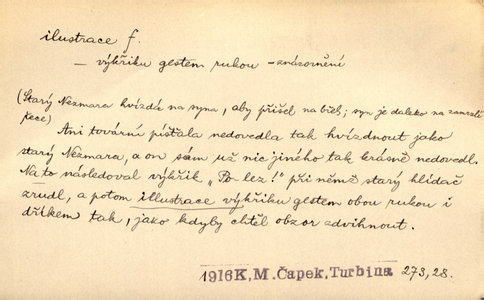 ilustrace f.
— výkřiku gestem rukou – znázornění
(Starý Nezmara hvízdá na syna, aby přišel na břeh; syn je daleko na zamrzlé
řece)
Ani tovární píšťala nedovedla tak hvízdnout jako
starý Nezmara, a on sám už nic jiného tak krásně nedovedl.
Na to následoval výkřik „Po lez!" při němž starý hlídač
zrudl, a potom illustrace výkřiku gestem obou rukou i
dříkem tak, jako kdyby chtěl obzor zdvihnout.
1916K,M.Čapek,Turbina 273,28.